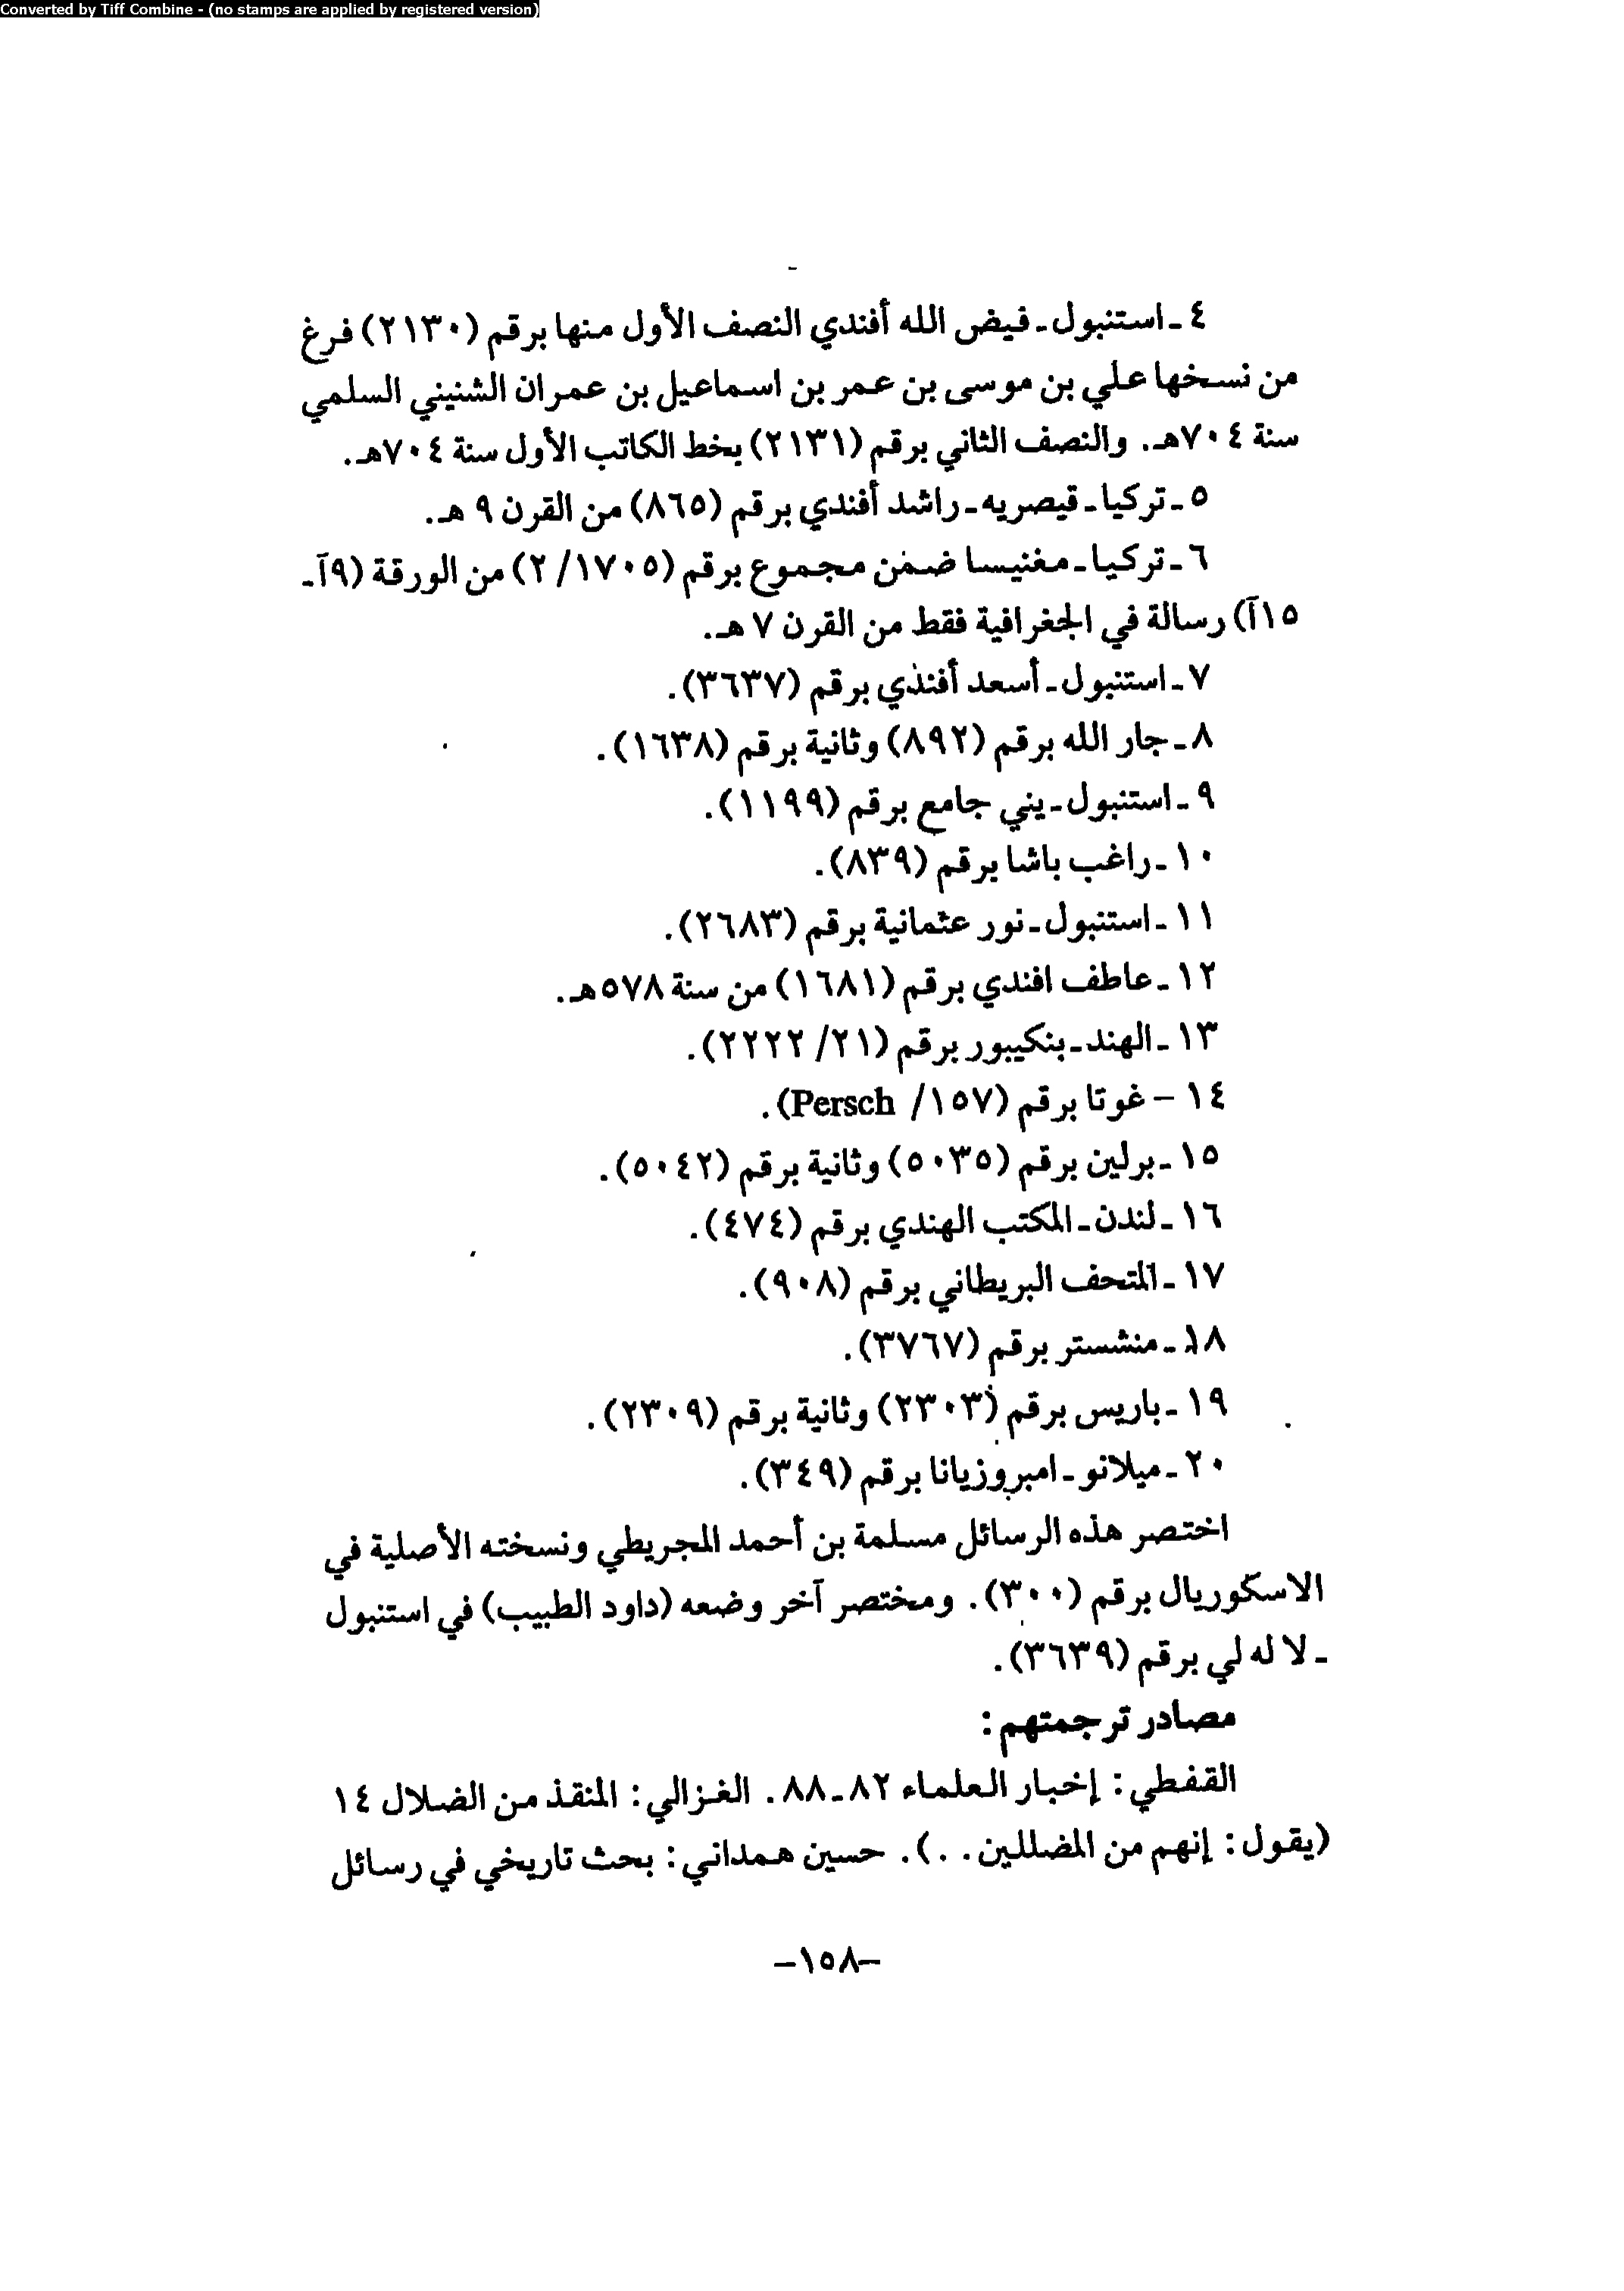 Converted by Tiff Combine - (no stamps are applied by registered version)
٤ ـ استنبول ـ فيض الله أفندي النصف الأول منها برقم (٢١٣٠) فرغ
من نسخها علي بن موسى بن عمر بن اسماعيل بن عمران الشنيني السلمي
سنة ٧٠٤هـ. والنصف الثاني برقم (٢١٣١) بخط الكاتب الأول سنة ٧٠٤هـ.
٥ ـ تركيا ـ قيصريه ـ راشد أفندي برقم (٨٦٥) من القرن ٩ هـ.
٦ ـ تركيا ـ مغنيسا ضمن مجموع برقم (١٧٠٥/ ٢) من الورقة (٩آ ـ
١٥آ) رسالة في الجغرافية فقط من القرن ٧ هـ.
٧ ـ استنبول ـ أسعد أفنذي برقم (٣٦٣٧).
٨ ـ جار الله برقم (٨٩٢) وثانية برقم (١٦٣٨).
٩ ـ استنبول ـ يني جامع برقم (١١٩٩).
١٠ ـ راغب باشا برقم (٨٣٩).
١١ ـ استنبول ـ نور عثمانية برقم (٢٦٨٣).
١٢ ـ عاطف افندي برقم (١٦٨١) من سنة ٥٧٨هـ.
١٣ ـ الهند ـ بنكيبور برقم (٢١/ ٢٢٢٢).
١٤ – غوتا برقم (١٥٧/ Persch).
١٥ ـ برلين برقم (٥٠٣٥) وثانية برقم (٥٠٤٢).
١٦ ـ لندن ـ المكتب الهندي برقم (٤٧٤).
١٧ ـ المتحف البريطاني برقم (٩٠٨).
١٨ ـ منشستر برقم (٣٧٦٧).
١٩ ـ باريس برقم (٢٣٠٣) وثانية برقم (٢٣٠٩).
٢٠ ـ ميلانو ـ امبروزيانا برقم (٣٤٩).
اختصر هذه الرسائل مسلمة بن أحمد المجريطي ونسخته الأصلية في
الاسكوريال برقم (٣٠٠). ومختصر آخر وضعه (داود الطبيب) في استنبول
ـ لا له لي برقم (٣٦٣٩).
مصادر ترجمتهم:
القفطي: إخبار العلماء ٨٢ ـ ٨٨. الغزالي: المنقذ من الضلال ١٤
(يقول: إنهم من المضللين. .). حسين همداني: بحث تاريخي في رسائل
–١٥٨–